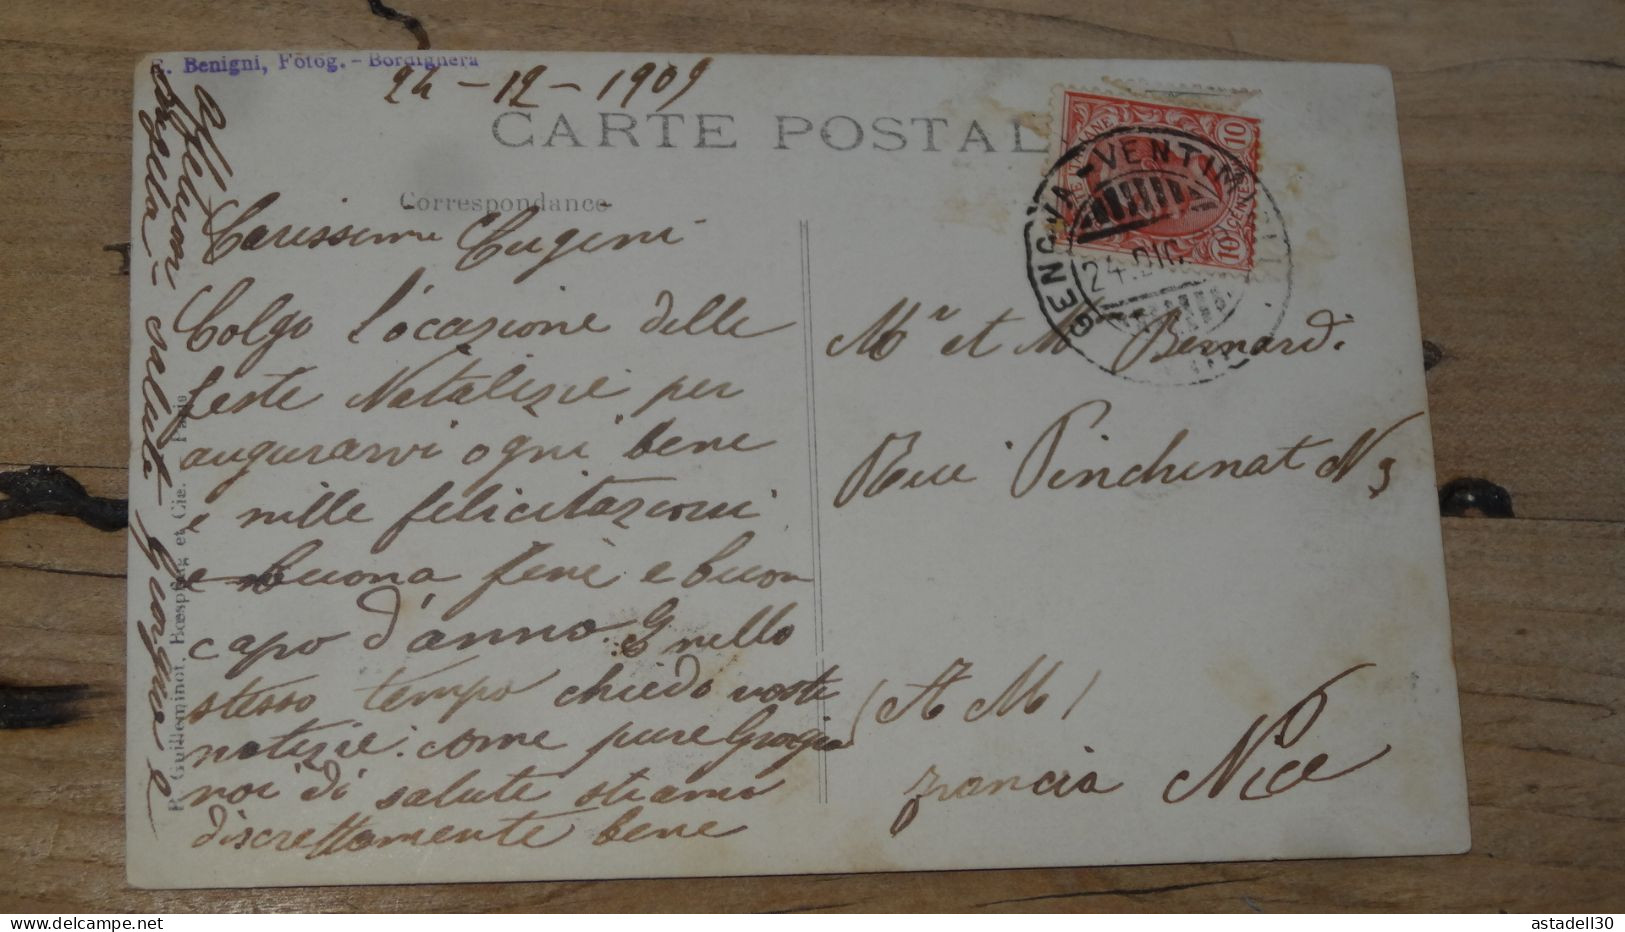 E. Benigni, Fotog. - Bordighera
24 - 12 - 1909
CARTE POSTAL
Correspondance
Carissimi Eugeni
Colgo l'ocasione delle
feste Natalizie per
augurarvi ogni bene
e mille felicitazioni
e buona fine e buon
capo d'anno. E nello
stesso tempo chiedo vostre
notizie: come pure Giorgio
noi di salute stiamo
discrettamente bene
saluti Giorgio e
R. Guilleminot, Bœspflug et Cie. Paris
10 CENTES 10
GENOVA-VENTIM
24 DIC
Mr et M Bernardi
Rue Pinchinat N 3
(A M)
francia Nice
astadell30
delcampe.net